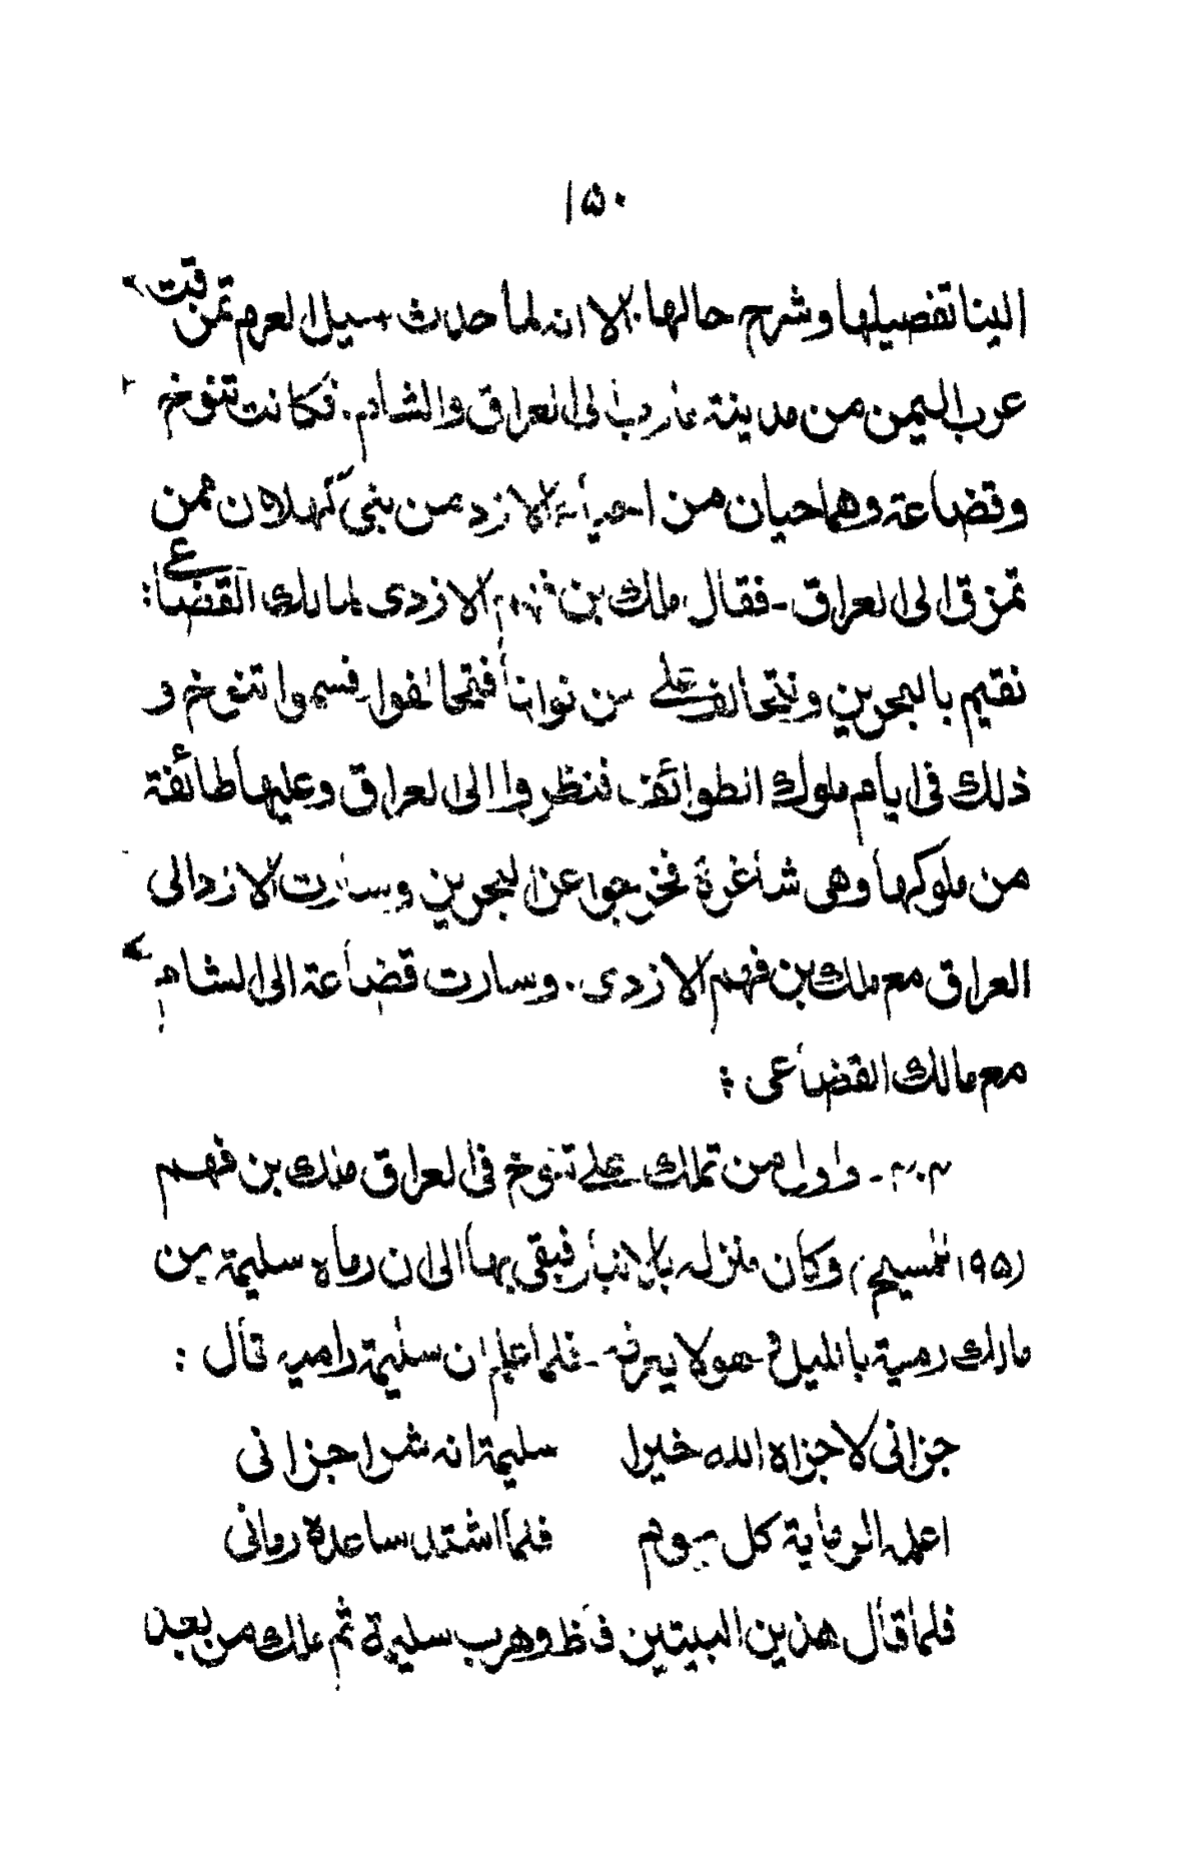 ۱۵۰
الينا تفصيلها وشرح حالها. الا انه لما حدث سيل العرم تمزقت
عرب اليمن من مدينة مارب الى العراق والشام. فكانت تنوخ
وقضاعة وهما حيان من احياء الازد من بنى كهلان ممن
تمزق الى العراق - فقال ملك بن فهم الازدى لمالك القضاعى:
نقيم بالبحرين ونتحالف على من نوانا فتحالفوا فسموا تنوخ و
ذلك فى ايام ملوك الطوائف فنظروا الى العراق وعليها طائفة
من ملوكها وهى شاغرة فخرجوا عن البحرين وسارت الازد الى
العراق مع ملك بن فهم الازدى. وسارت قضاعة الى الشام
مع مالك القضاعى :
۲۰۳- واول من تملك على تنوخ فى العراق ملك بن فهم
(۱۹۵ للمسيح) وكان منزله بالانبار فبقى بها الى ان رماه سليمة بن
مالك رمية بالليل وهو لا يعرفه - فلما علم ان سليمة راميه قال :
جزانى لا جزاه الله خيرا سليمة انه شرا جزانى
اعلمه الرماية كل يوم فلما اشتد ساعده رمانى
فلما قال هذين البيتين فاظ وهرب سليمة ثم ملك من بعد